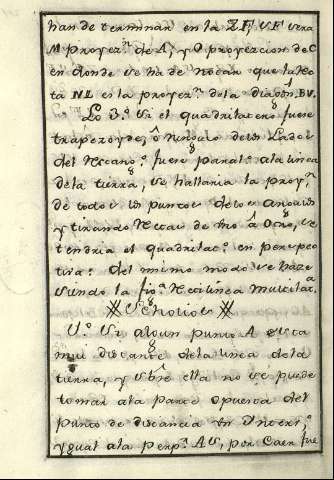 han de terminar en la ZF, y F sera
M proyez.n de A, y O proyeccion de C
en donde se ha de notar que la Rec
ta NL es la proyez.n de la diagon.l BV.
Lo 3.o Si el quadrilatero fuese
trapezoyde, ô ninguno de los Lados
del Rectang.o fuese paral.o a la linea
de la tierra, se hallaria la proy.n
de todos los puntos de los angulos
y tirando Rectas de uno â Otro, se
tendria el quadrilat.o en perspec
tiva: del mismo modo se haze
siendo la fig.a Rectilinea multilat.a
Scholio
1.o Si algun punto A dista
mui distante de la linea de la
tierra, y sobre ella no se puede
tomar a la parte opuesta del
punto de distancia un Interv.o
ygual a la perp.r AS, por Caer fue